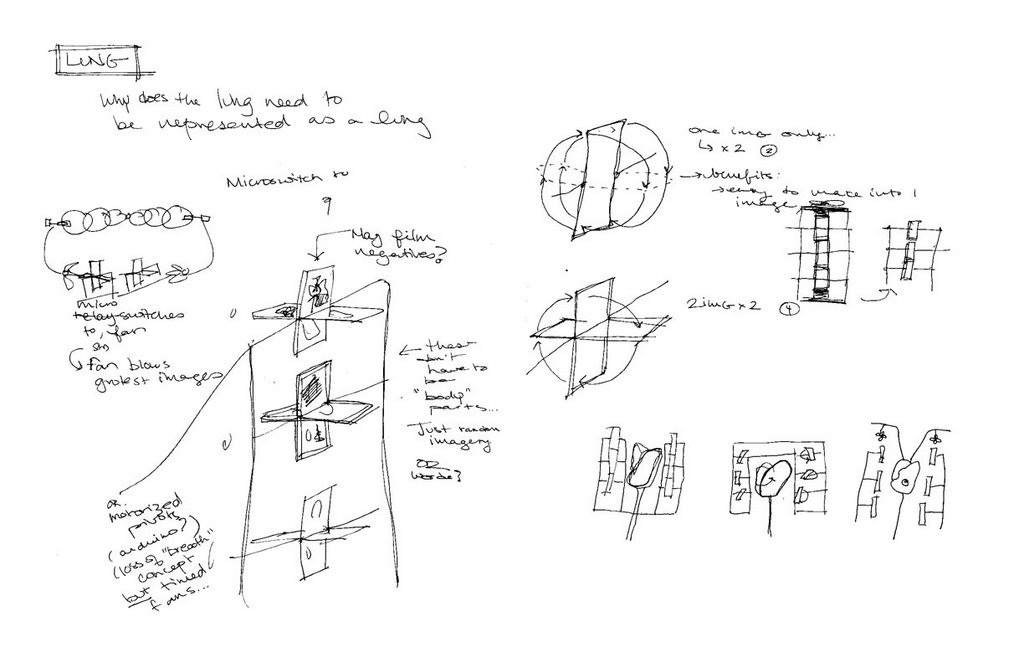 LUNG
Why does the lung need to
be represented as a lung
Microswitch to
?
May film
negatives?
micro
relay switches
to, fan
fan blows
images
these
don't
have to
be
"body"
parts...
Just random
imagery
OR
words?
OR
motorized
pivots
(arduino?)
(loss of "breath"
concept
but timed
fans...
one img only...
↳ x 2 ②
→ benefits:
→ easy to make into 1
image
2 img x 2 ④